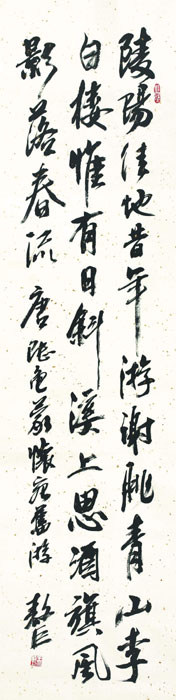 陵陽佳地昔年游謝朓青山李
白樓惟有日斜溪上思酒旗風
影落春流 唐陸龜蒙懷宛舊游